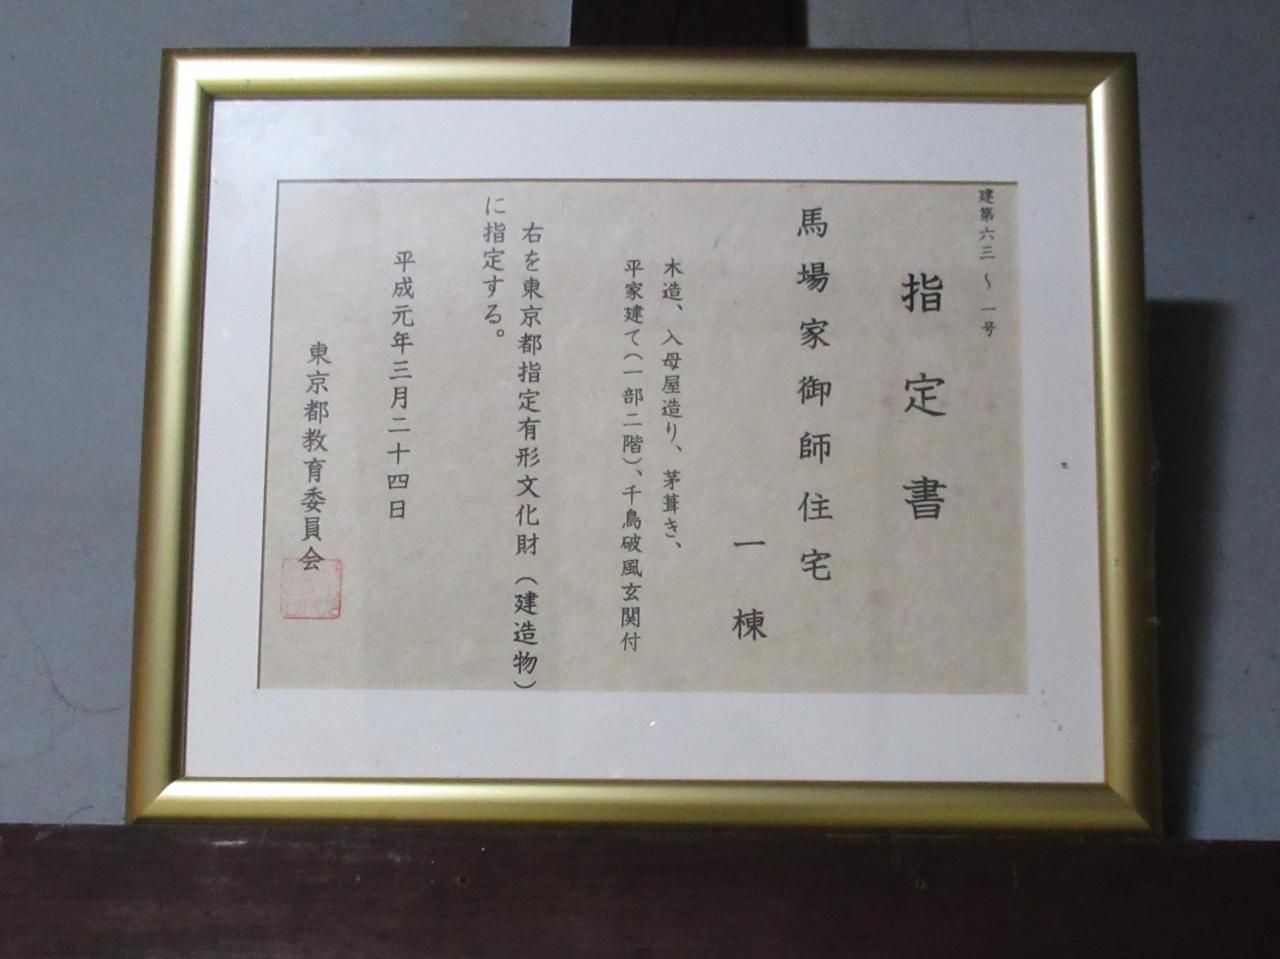 建第六三〜一号
指定書
馬場家御師住宅
一棟
木造、入母屋造り、茅葺き、
平家建て(一部二階)、千鳥破風玄関付
右を東京都指定有形文化財(建造物)
に指定する。
平成元年三月二十四日
東京都教育委員会